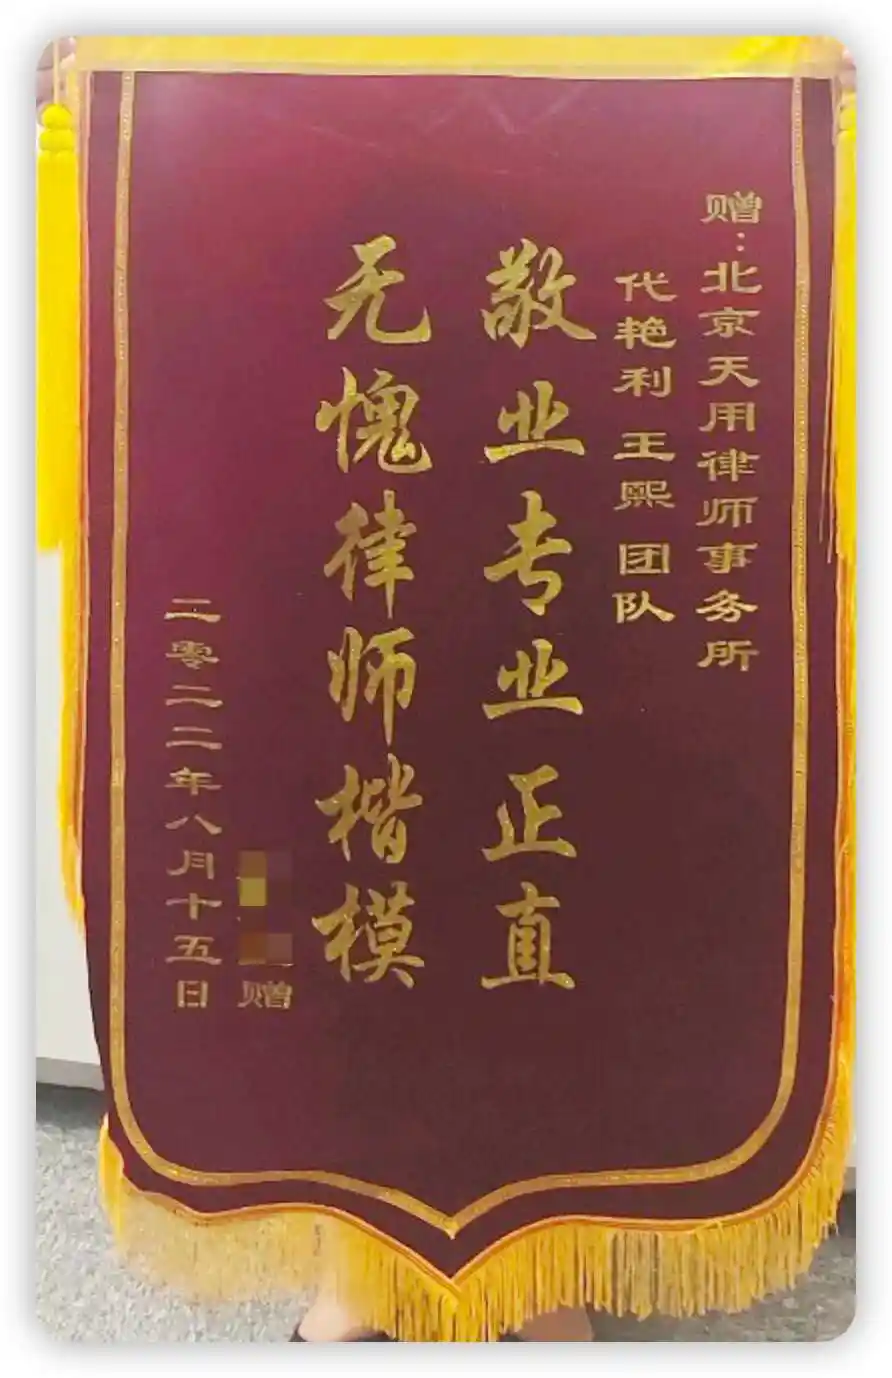 赠：北京天用律师事务所
代艳利 王熙 团队
敬业专业正直
无愧律师楷模
赠
二零二二年八月十五日